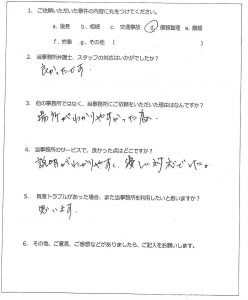 1. ご依頼いただいた事件の内容に丸をつけてください。
a. 後見 b. 相続 c. 交通事故 d. 債務整理 e. 離婚
f. 労働 g. その他（ ）
2. 当事務所弁護士、スタッフの対応はいかがでしたか？
良かったです
3. 他の事務所ではなく、当事務所にご依頼をいただいた理由はなんですか？
場所がわかりやすかった為
4. 当事務所のサービスで、良かった点はどこですか？
説明がわかりやすく、優しい対応でした。
5. 再度トラブルがあった場合、また当事務所を利用したいと思いますか？
思います。
6. その他、ご意見、ご感想などがありましたら、ご記入をお願いします。